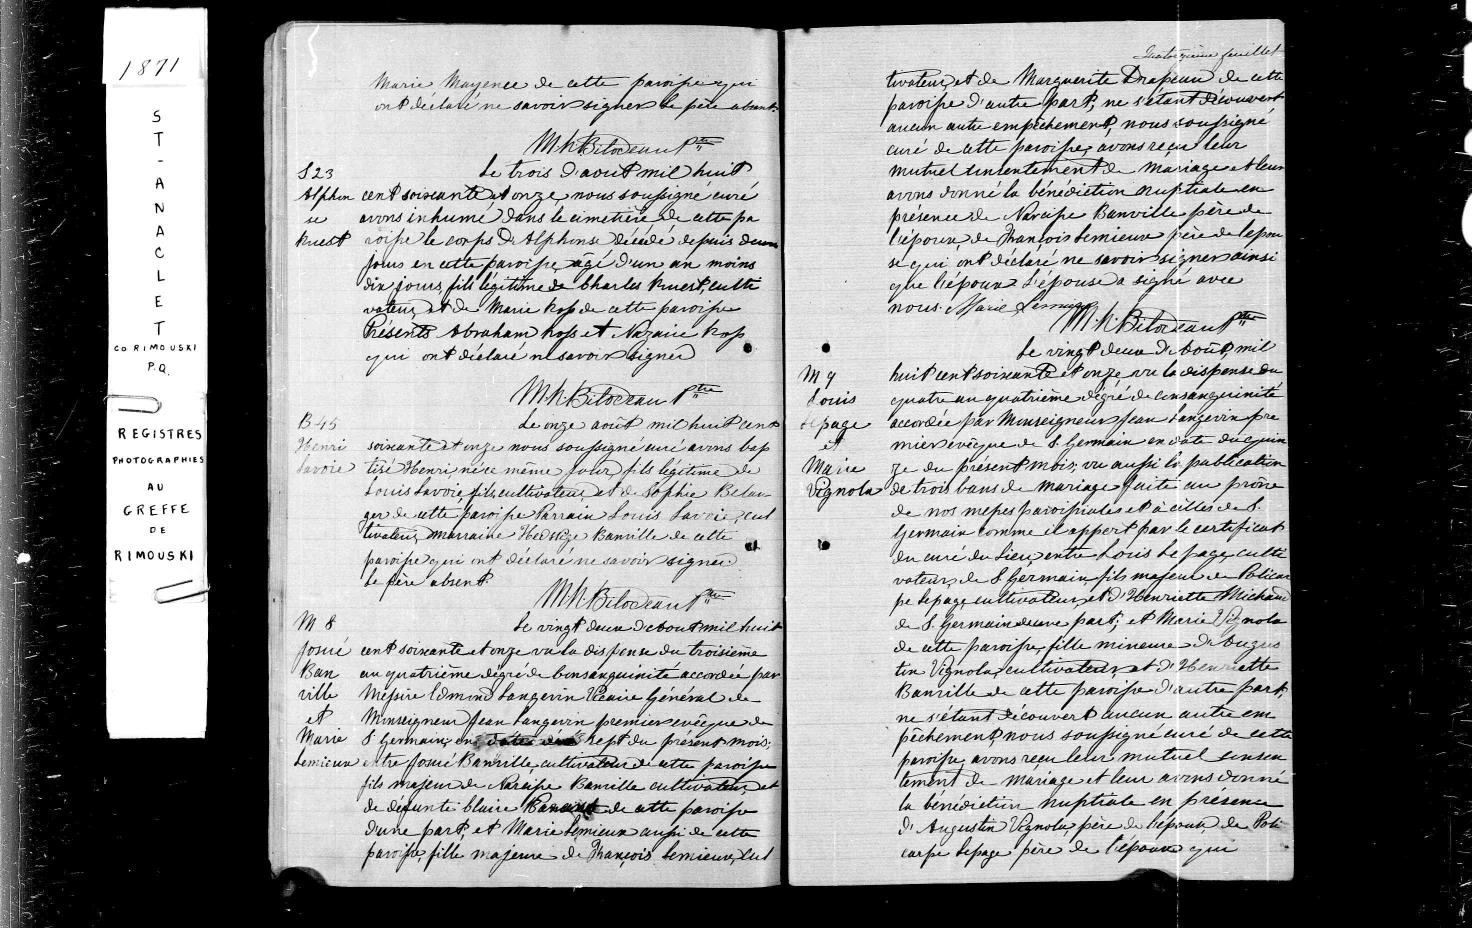 1871
ST-ANACLET
CO RIMOUSKI
P.Q.
REGISTRES
PHOTOGRAPHIES
AU
GREFFE
DE
RIMOUSKI
Marie Mayence de cette paroisse qui
ont déclaré ne savoir signer le père absent.
M.N. Bilodeau Ptre
S 23
Alphon
se
Ruest
Le trois d'août mil huit
cent soixante et onze nous soussigné curé
avons inhumé dans le cimetière de cette pa
roisse le corps D'Alphonse décédé depuis deux
jours en cette paroisse, âgé d'un an moins
dix jours, fils légitime de Charles Ruest, culti
vateur, et de Marie Ross de cette paroisse
Présents Abraham Ross et Nazaire Ross
qui ont déclaré ne savoir signer
M.N. Bilodeau Ptre
B 45
Henri
Lavoie
Le onze août mil huit cent
soixante et onze nous soussigné curé avons bap
tisé Henri né ce même jour, fils légitime de
Louis Lavoie, fils, cultivateur, et de Sophie Belan
ger de cette paroisse Parrain Louis Lavoie, cul
tivateur, marraine Hedwige Banville de cette
paroisse qui ont déclaré ne savoir signer
Le père absent
M.N. Bilodeau Ptre
M 8
Josué
Ban
ville
et
Marie
Lemieux
Le vingt deux d'août mil huit
cent soixante et onze vu la dispense du troisième
au quatrième dégré de consanguinité accordée par
Messire Edmond Langevin Vicaire Général de
Monseigneur Jean Langevin premier evêque de
S. Germain, en date du sept du présent mois,
entre Josué Banville cultivateur de cette paroisse
fils majeur de Narcisse Banville cultivateur, et
de défunte Claire de cette paroisse
d'une part, et Marie Lemieux aussi de cette
paroisse fille majeure de François Lemieux, cul
Quatorzième feuillet
tivateur, et de Marguerite Drapeau de cette
paroisse d'autre part, ne s'étant découvert
aucun autre empêchement, nous soussigné
curé de cette paroisse, avons reçu leur
mutuel consentement de mariage et leur
avons donné la bénédiction nuptiale en
présence de Narcisse Banville père de
l'époux, de François Lemieux père de l'épou
se qui ont déclaré ne savoir signer ainsi
que l'époux L'épouse a signé avec
nous. Marie Lemieux
M.N. Bilodeau Ptre
M 9
Louis
Lepage
et
Marie
Vignola
Le vingt deux d'Août, mil
huit cent soixante et onze, vu la dispense du
quatre au quatrième dégré de consanguinité
accordée par Monseigneur Jean Langevin pre
mier evêque de S. Germain en date du quin
ze du présent mois, vu aussi la publication
de trois bans de mariage faite au prône
de nos messes paroissiales et à celles de S.
Germain comme il appert par le certificat
du curé du Lieu, entre Louis Lepage, culti
vateur, de S. Germain, fils majeur de Policar
pe Lepage, cultivateur, et d'Henriette Michaud
de S. Germain d'une part; et Marie Vignola
de cette paroisse, fille mineure D'Augus
tin Vignola, cultivateur, et d'Henriette
Banville de cette paroisse d'autre part,
ne s'étant découvert aucun autre em
pêchement, nous soussigné curé de cette
paroisse, avons reçu leur mutuel consen
tement de mariage et leur avons donné
la bénédiction nuptiale en présence
d'Augustin Vignola, père de l'épouse, de Poli
carpe Lepage père de l'époux qui